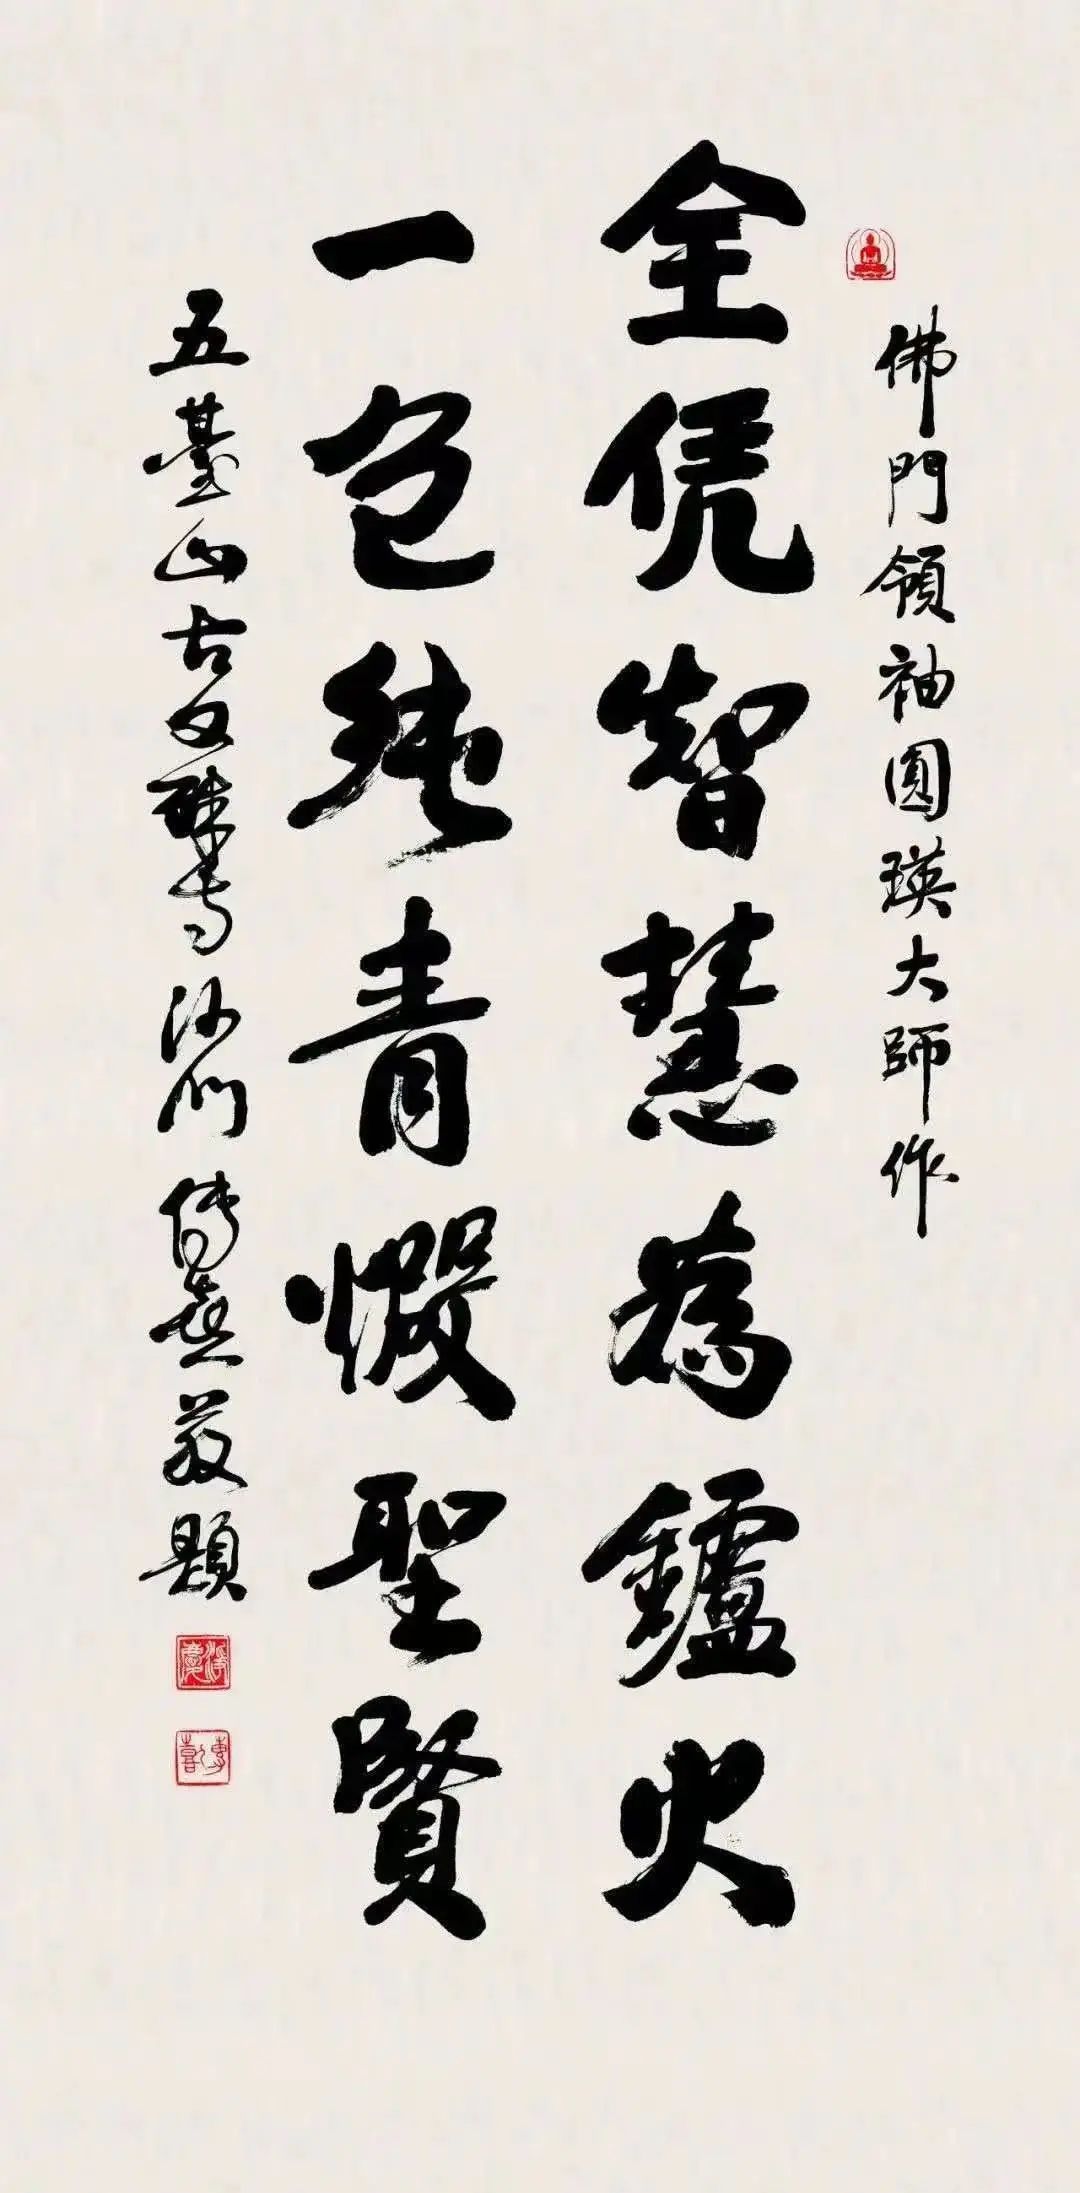 佛門領袖圓瑛大師作
全凭智慧為鑪火
一色純青煅聖賢
五臺山古文殊寺沙門傳喜敬題